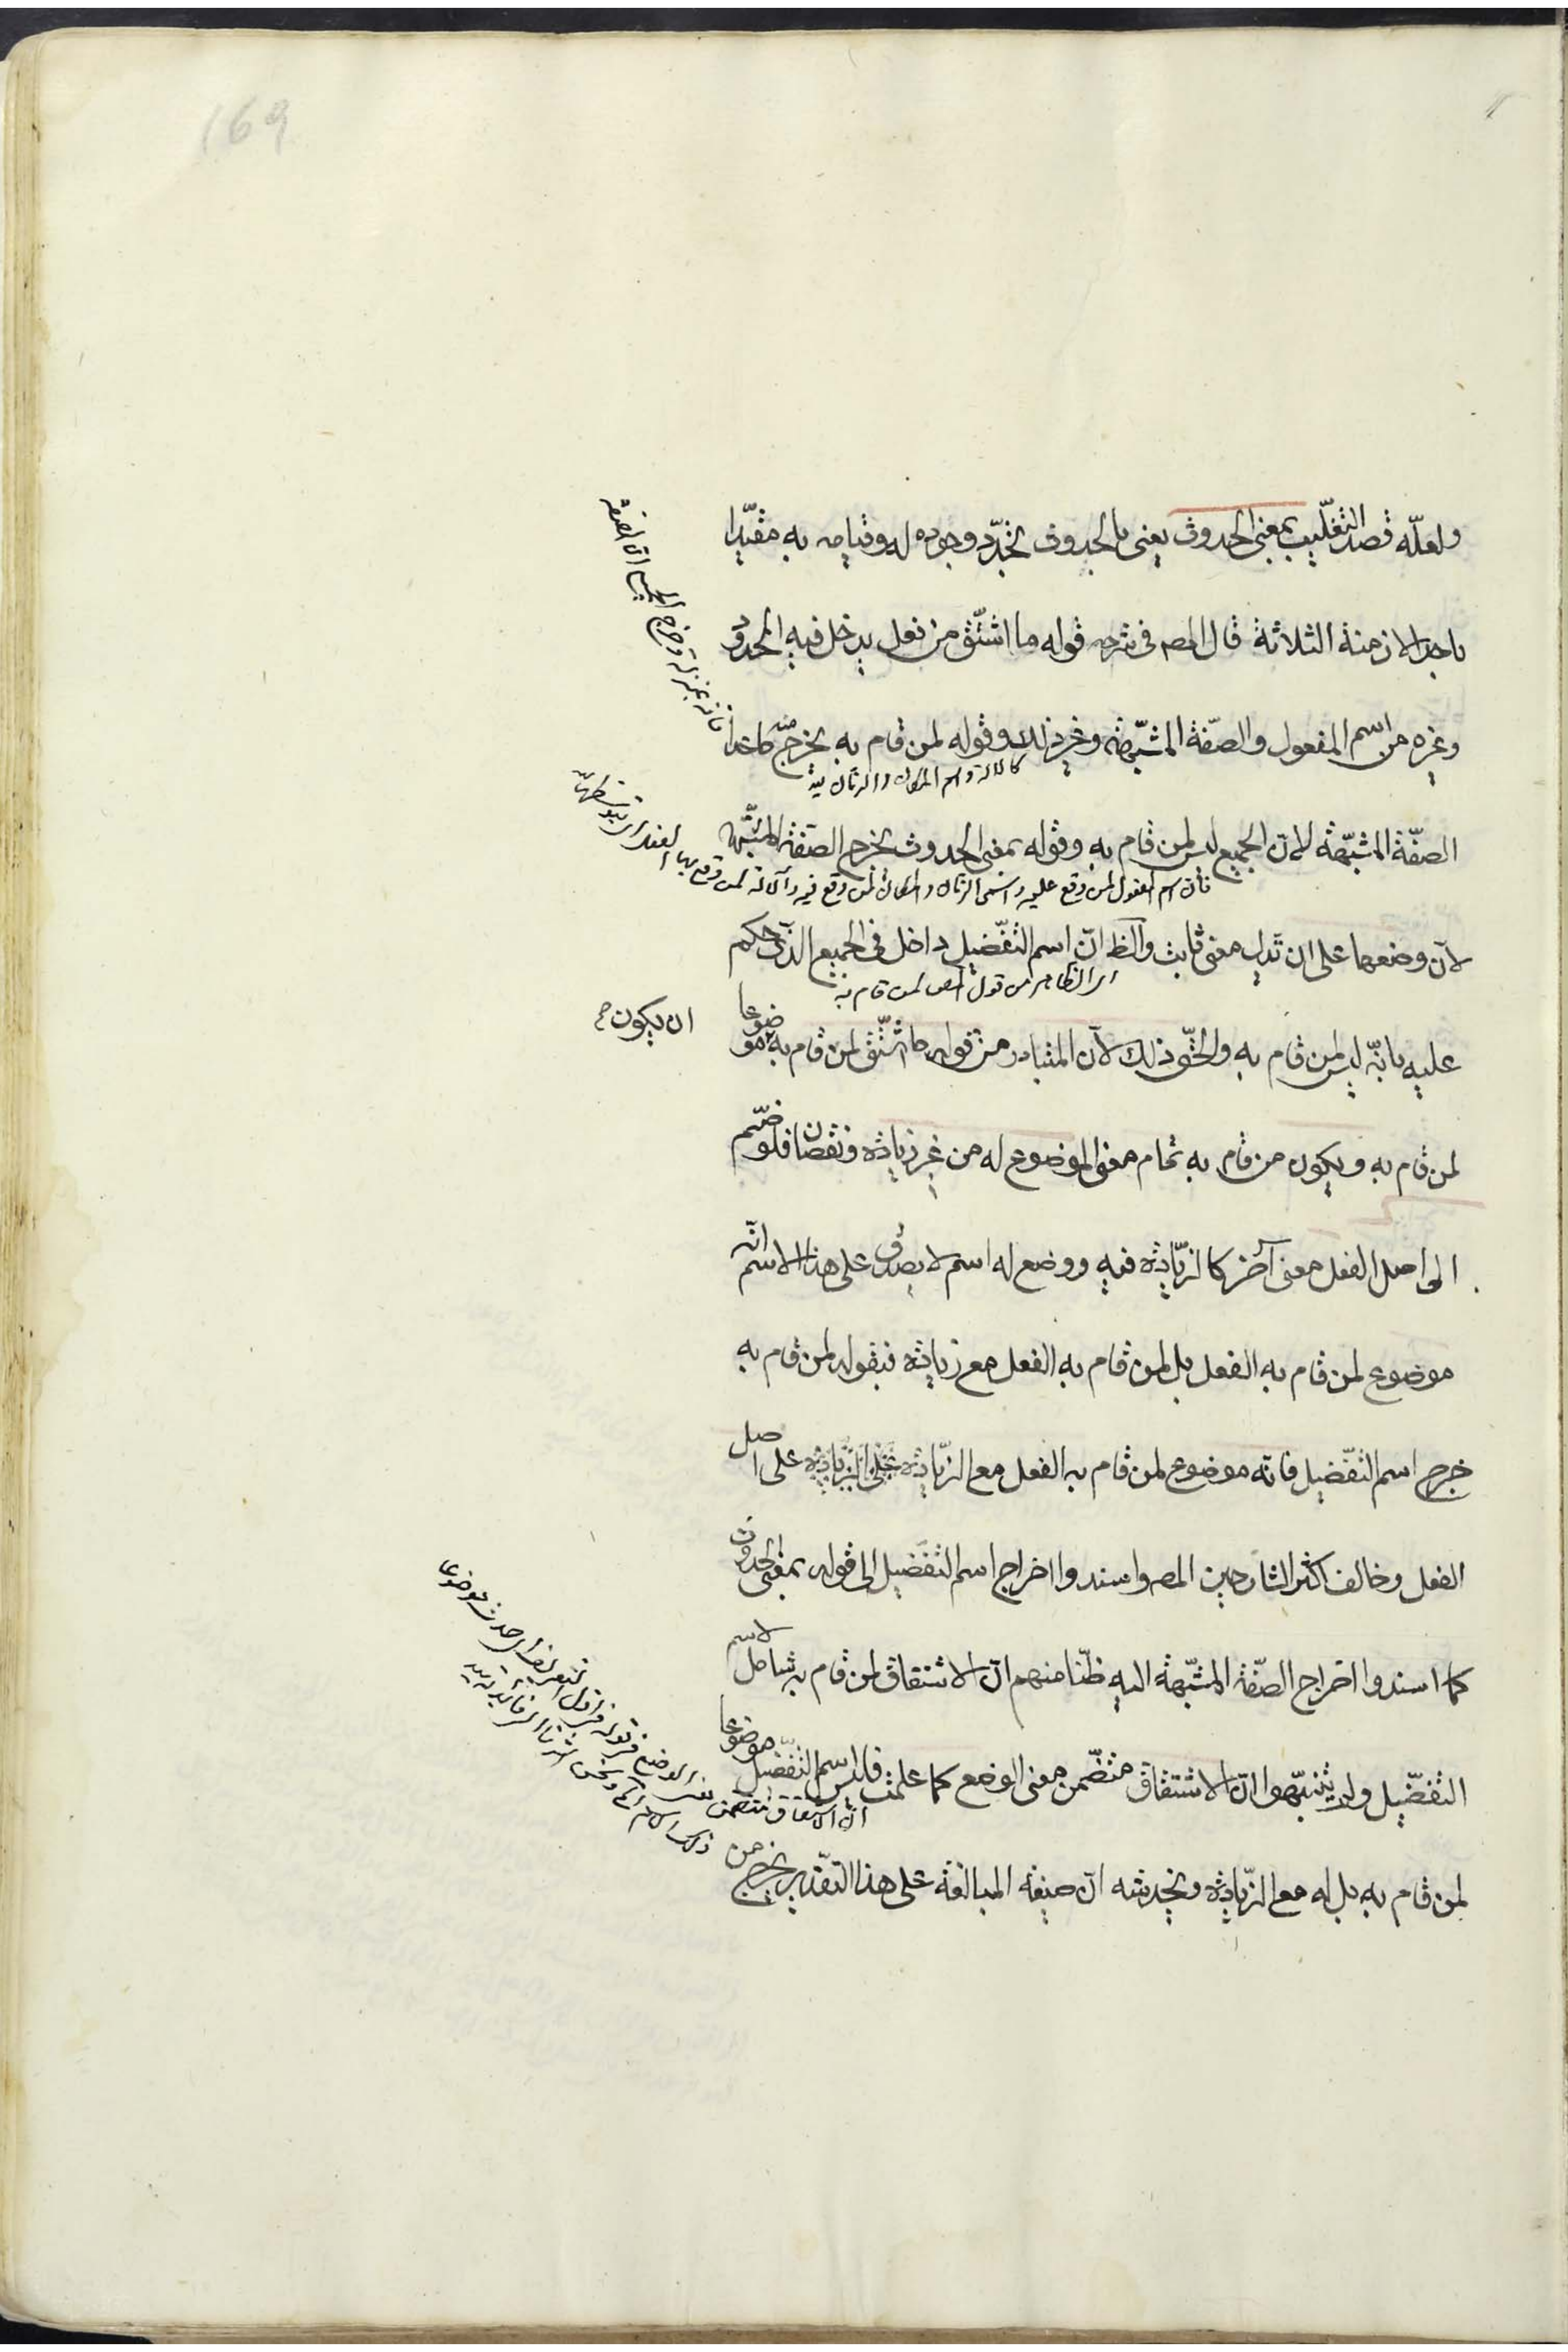 169
ولعلّه قصد التغليب بمعنى الحدوث يعنى بالحدوث تجدّد وجوده له وقيامه به مقيّدا
باحد الازمنة الثلاثة قال المص فى شرحه قوله ما اشتقّ من فعل يدخل فيه المحدود
وغيره من اسم المفعول والصّفة المشبّهة وغير ذلك وقوله لمن قام به يخرج منه ما عدا
كالالة واسم المكان والزمان
الصفّة المشبّهة لانّ الجميع ليس لمن قام به وقوله بمعنى الحدوث يخرج الصّفة المشبّهة
فان اسم المفعول لمن وقع عليه واسمى الزمان والمكان لمن وقع فيه والالة لمن وقع بها الفعل
لانّ وضعها على ان تدل معنى ثابت والظ انّ اسم التفضيل داخل فى الجميع الذى حكم
اى الظاهر من قول المص لمن قام به
عليه بانّه ليس لمن قام به والحقّ ذلك لانّ المتبادر من قوله ما اشتقّ لمن قام به موضوعا
ان يكون
لمن قام به ويكون من قام به تمام معنى الموضوع له من غير زيادة ونقصان فلو ضمّ
الى اصل الفعل معنى آخر كالزّيادة فيه ووضع له اسم لا يصدق على هذا الاسم انّه
موضوع لمن قام به الفعل بل لمن قام به الفعل مع زيادة فبقوله لمن قام به
خرج اسم التفضيل فانّه موضوع لمن قام به الفعل مع الزّيادة على اصل
الفعل وخالف اكثر الشارحين المص واسندوا اخراج اسم التفضيل الى قوله بمعنى الحدوث
كما اسندوا اخراج الصّفة المشبّهة اليه ظنّا منهم انّ الاشتقاق لمن قام به شامل لاسم
التفضيل ولم يتنبّهوا انّ الاشتقاق متضمّن معنى الوضع كما علمت فليس اسم التفضيل موضوعا
ان الاشتقاق متضمن
لمن قام به بل له مع الزّيادة ويخدشه انّ صيغة المبالغة على هذا التقدير يخرج من